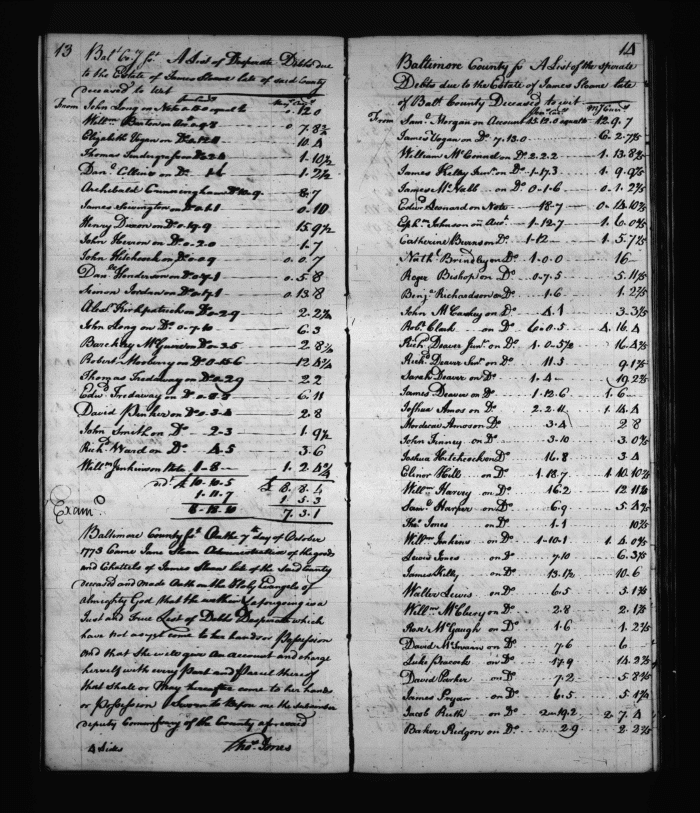 13 Balt Co.ty sst. A List of Desperate Debts due
to the Estate of James Sloane late of said County
deceased to Wit
From John Long on Note
Willm Barton on Acct 0.9.8 0 7.8⅔
Elizabeth Vogan on Do 10.4
Thomas on Do 1.10½
Danl Collins on Do 1.6 1.2⅖
Archibald Cunningham Do 8.7
James on Do 0.1.1 0.10
Henry Dixon on Do 0.19.9 15.9½
John Herron on Do 0.2.0 1.7
John Hitchcock on Do 0.0.9 0.0.7
Danl Henderson on Do 0.7.1 0.5.8
Simon Jordan on Do 0.13.8
Alexr Kirkpatrick on Do 0.2.9 2.2⅖
John Long on Do 0.7.10 6.3
Barckley McGames on Do 2.8⅖
Robert on Do 0.15.6 12.4⅘
Thomas Tredaway on Do 0.2.9 2.2
Edwd Tredaway on Do 6.11
David on Do 0.3.4 2.8
John Smith on Do 2.3 1.9½
Richd Ward on Do 4.5 3.6
Willm Jenkins on Note 1.8 1.2.4⅘
£10.10.5 £8.8.4
1.11.7 1.5.3
8.18.10 7.3.1
Examd
Baltimore County sst. On the 7th day of October
1773 Came Jane Sloan Administratrix of the goods
and Chattels of James Sloan late of the Said County
deceased and made Oath on the Holy Evangels of
almighty God that the within & aforegoing is a
Just and True List of Debts Desperate which
have not as yet come to her hands or Possession
And that She will give An Account and charge
herself with every Part and Parcel thereof
that Shall or May hereafter come to her hands
or Possession Sworn to Before me the Subscriber
deputy Commissary of the County aforesaid
4 Sides Thos Jones
14
Baltimore County ss A List of the sperate
Debts due to the Estate of James Sloane late
of Balt County Deceased to wit
From Saml Morgan on Account 15.12.0 equal to 12.9.7
James Vogan on Do 7.13.0 6.2.7⅕
William McConnal on Do 2.2.2 1.13.8⅘
James Kelley Junr on Do 1.17.3 1.9.9⅗
James McNabb on Do 0.1.6 0.1.2⅖
Edwd Leonard on Note 18.7 0.14.10⅖
Ephm Johnson on Acct 1.12.7 1.6.0⅘
Catherine Burns on Do 1.12 1.5.7⅕
Nathl Brindley on Do 1.0.0 16
Roger Bishop on Do 0.7.5 5.11⅕
Benja Richardson on Do 1.6 1.2⅖
John McCaskey on Do 4.1 3.3⅕
Robt Clark on Do 6.0.5 4.16.4
Richd Deaver Junr on Do 1.0.5½ 16.4⅖
Richd Deaver Senr on Do 11.5 9.1⅗
Sarah Deaver on Do 1.4 19.2⅖
James Deaver on Do 1.12.6 1.6
Joshua Amos on Do 2.2.11 1.14.4
Mordecai Amos on Do 3.4 2.8
John Finney on Do 3.10 3.0⅘
Joshua Hitchcock on Do 16.8 3.4
Elinor Hill on Do 1.18.7 1.10.10⅖
Willm Harvey on Do 16.2 12.11⅕
Saml Harper on Do 6.9 5.4⅘
Thos Jones on Do 1.1 10⅖
Willm Jenkins on Do 1.10.1 1.4.0⅘
Lewis Jones on Do 7.10 6.3⅕
James Kelley on Do 13.1½ 10.6
Walter Lewis on Do 6.5 5.1⅗
Willm McElroy on Do 2.8 2.1⅗
Rose McGaugh on Do 1.6 1.2⅖
David McSwain on Do 7.6 6
Luke Peacock on Do 17.9 14.2⅖
David Parker on Do 7.2 5.8⅘
James Pryar on Do 6.5 5.1⅗
Jacob Ruth on Do 2.19.2 2.7.4
Baker Ridgon on Do 2.9 2.2⅖